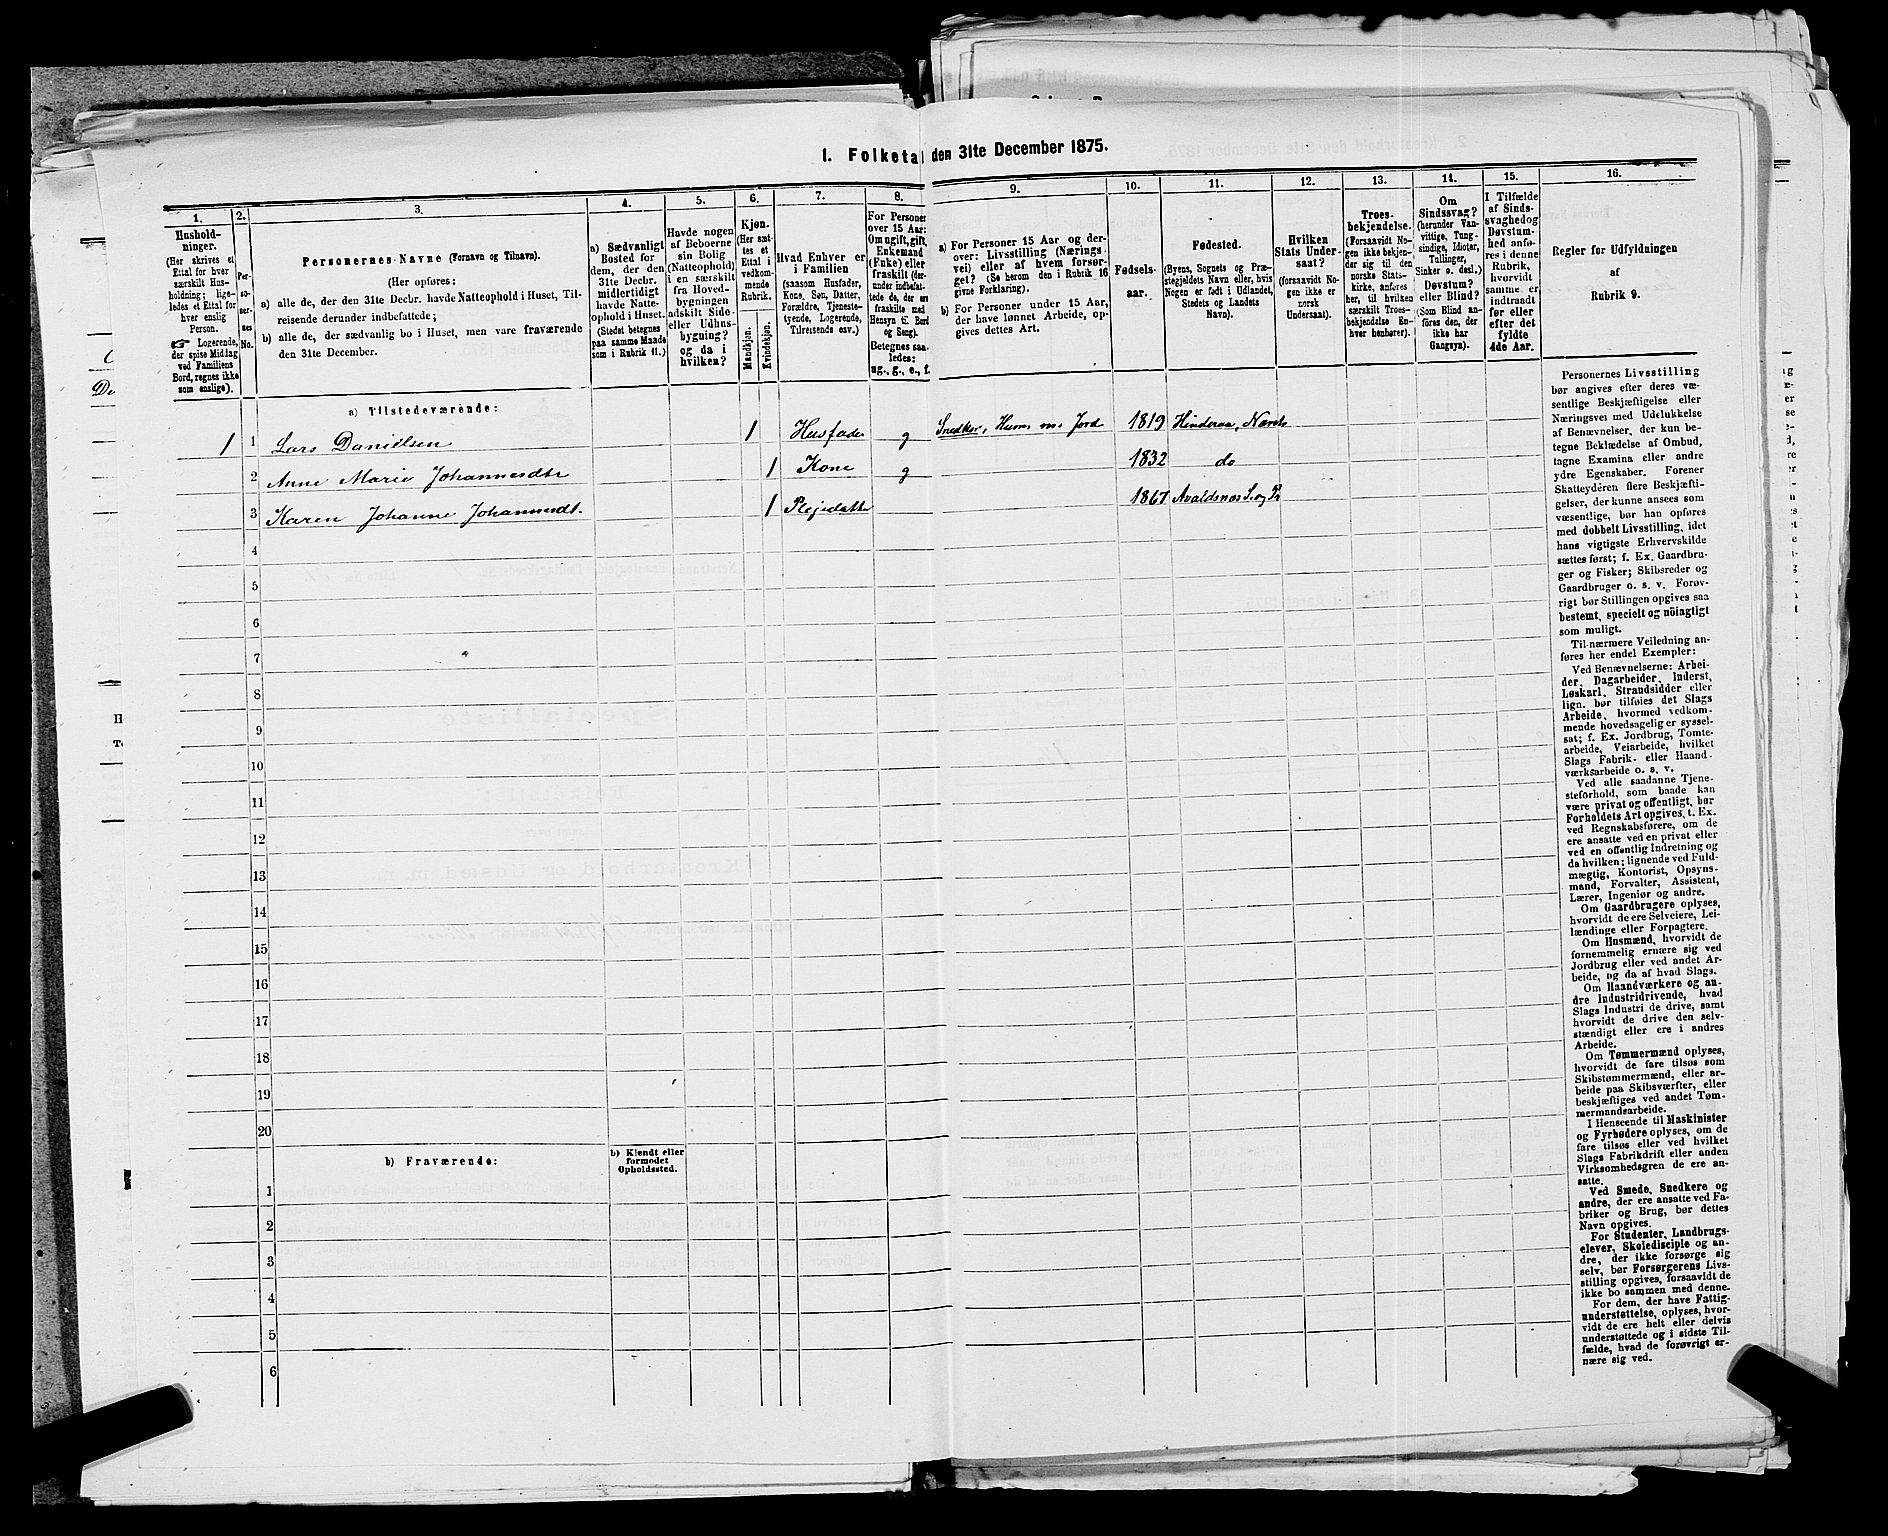 1. Folketal den 31te December 1875.
1.
2.
3.
4.
5.
6.
7.
8.
9.
10.
11.
12.
13.
14.
15.
16.
Hushold-
ninger.
(Her skrives et
Ettal for hver
særskilt Hus-
holdning; lige-
ledes et Ettal for
hver enslig
Person.
☞ Logerende,
der spise Middag
ved Familiens
Bord, regnes ikke
som enslige).
Per-
so-
ner-
nes
No.
Personernes Navne (Fornavn og Tilnavn).
(Her opføres:
a) alle de, der den 31te Decbr. havde Natteophold i Huset, Til-
reisende derunder indbefattede;
b) alle de, der sædvanlig bo i Huset, men vare fraværende
den 31te December.
a) Sædvanligt
Bosted for
dem, der den
31te Decbr.
midlertidigt
havde Natte-
ophold i Huset.
(Stedet betegnes
paa samme Maade
som i Rubrik 11.)
Havde nogen
af Beboerne
sin Bolig
(Natteophold)
i en særskilt
fra Hoved-
bygningen
adskilt Side-
eller Udhus-
bygning?
og da i
hvilken?
Kjøn.
(Her sæt-
tes et
Ettal i
vedkom-
mende
Rubrik.
Mandkjøn.
Kvindekjøn.
Hvad Enhver er
i Familien
(saasom Husfader,
Kone, Søn, Datter,
Forældre, Tjeneste-
tyende, Logerende,
Tilreisende osv.)
For Personer
over 15 Aar:
Om ugift, gift,
Enkemand
(Enke) eller
fraskilt (der-
under indbefat-
tede de, der ere
fraskilte med
Hensyn til Bord
og Seng).
Betegnes saa-
ledes:
ug., g., e., f.
a) For Personer 15 Aar og der-
over: Livsstilling (Nærings-
vei) eller af hvem forsør-
get? (Se herom den i Rubrik 16
givne Forklaring).
b) For Personer under 15 Aar,
der have lønnet Arbeide, op-
gives dettes Art.
Fødsels-
aar.
Fødested.
(Byens, Sognets og Præ-
stegjeldets Navn eller, hvis
Nogen er født i Udlandet,
Stedets og Landets
Navn).
Hvilken
Stats Under-
saat?
(forsaavidt No-
gen ikke er
norsk
Undersaat).
Troes-
bekjendelse.
(Forsaavidt No-
gen ikke bekjen-
der sig til den
norske Stats-
kirke, anføres
her, til hvilken
særskilt Troes-
bekjendelse En-
hver henhører).
Om
Sindssvag?
(herunder Van-
vittige, Tung-
sindige, Idioter,
Tullinger,
Sinker o. desl.)
Døvstum?
eller Blind?
(Som Blind an-
føres den, der
ikke har
Gangsyn).
I Tilfælde
af Sinds-
svaghed og
Døvstum-
hed anfø-
res i denne
Rubrik,
hvorvidt
samme er
indtraadt
før eller
efter det
fyldte
4de Aar.
Regler for Udfyldningen
af
Rubrik 9.
a) Tilstedeværende:
1 1 Lars Danielsen 1 Husfader g Snedker, Husm. m. Jord 1819 Hinderaa, Narst.
2 Anne Marie Johannesdtr 1 Kone g 1832 do
3 Karen Johanne Johannesdt. 1 Plejedatter 1867 Avaldsnes S. og Pr
4
5
6
7
8
9
10
11
12
13
14
15
16
17
18
19
20
b) Fraværende:
b) Kjendt eller
formodet
Opholdssted.
1
2
3
4
5
6
Personernes Livsstilling
bør angives efter deres væ-
sentlige Beskjæftigelse eller
Næringsvei med Udelukkelse
af Benævnelser, der kun be-
tegne Beklædelse af Ombud,
tagne Examina eller andre
ydre Egenskaber. Forener
Skatteyderen flere Beskjæfti-
gelser, der kunne ansees som
væsentlige, bør han opføres
med dobbelt Livsstilling, idet
hans vigtigste Erhvervskilde
sættes først; f. Ex. Gaardbru-
ger og Fisker; Skibsreder og
Gaardbruger o. s. v. Forøv-
rigt bør Stillingen opgives saa
bestemt, specielt og nöiagtigt
som muligt.
Til nærmere Veiledning an-
føres her endel Exempler:
Ved Benævnelserne: Arbei-
der, Dagarbeider, Inderst,
Løskarl, Strandsidder eller
lign. bør tilføies det Slags
Arbeide, hvormed vedkom-
mende hovedsagelig er syssel-
sat; f. Ex. Jordbrug, Tomte-
arbeide, Veiarbeide, hvilket
Slags Fabrik- eller Haand-
værksarbeide o. s. v.
Ved alle saadanne Tjene-
steforhold, som baade kan
være privat og offentligt, bør
Forholdets Art opgives, t. Ex.
ved Regnskabsførere, om de
ere ansatte ved en privat eller
ved en offentlig Indretning og
da hvilken; lignende ved Fuld-
mægtig, Kontorist, Opsyns-
mand, Forvalter, Assistent,
Lærer, Ingeniør og andre.
Om Gaardbrugere oplyses,
hvorvidt de ere Selveiere, Lei-
lændinge eller Forpagtere.
Om Husmænd, hvorvidt de
fornemmelig ernære sig ved
Jordbrug eller ved andet Ar-
beide, og da af hvad Slags.
Om Haandværkere og an-
dre Industridrivende, hvad
Slags Industri de drive, samt
hvorvidt de drive den selv-
stændigt eller ere i andres
Arbeide.
Om Tømmermænd oplyses,
hvorvidt de fare tilsøs som
Skibstømmermænd, eller ar-
beide paa Skibsværfter, eller
beskjæftiges ved andet Tøm-
mermandsarbeide.
I Henseende til Maskinister
og Fyrbødere oplyses, om de
fare tilsøs eller ved hvilket
Slags Fabrikdrift eller anden
Virksomhedsgren de ere an-
satte.
Ved Smede, Snedkere og
andre, der ere ansatte ved Fa-
briker og Brug, bør dettes
Navn opgives.
For Studenter, Landbrugs-
elever, Skoledisciple og an-
dre, der ikke forsørge sig
selv, bør Forsørgerens Livs-
stilling opgives, forsaavidt de
ikke bo sammen med denne.
For dem, der have Fattig-
understøttelse, oplyses, hvor-
vidt de ere helt eller delvis
understøttede og i sidste Til-
fælde, hvad de forøvrigt er-
nære sig ved.